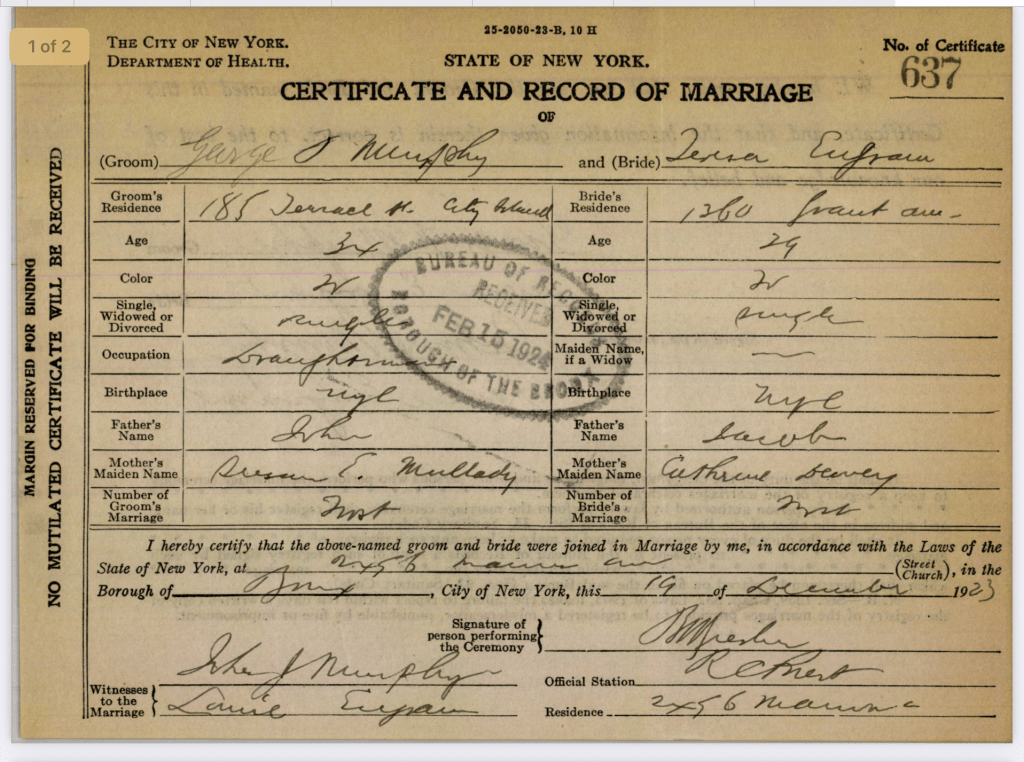 1 of 2
25-2050-23-B, 10 H
THE CITY OF NEW YORK.
DEPARTMENT OF HEALTH.
STATE OF NEW YORK.
No. of Certificate
637
CERTIFICATE AND RECORD OF MARRIAGE
OF
(Groom) George J Murphy and (Bride) Teresa
Groom's Residence 185 Terrace City Island Bride's Residence 1360 Grant ave
Age 34 Age 29
Color W Color W
Single, Widowed or Divorced single Single, Widowed or Divorced single
Occupation Maiden Name, if a Widow —
Birthplace nyc Birthplace nyc
Father's Name John Father's Name Jacob
Mother's Maiden Name Susan E. Mullady Mother's Maiden Name
Number of Groom's Marriage First Number of Bride's Marriage First
BUREAU OF RECORDS
RECEIVED
FEB 15 1924
BOROUGH OF THE BRONX
I hereby certify that the above-named groom and bride were joined in Marriage by me, in accordance with the Laws of the
State of New York, at (Street Church), in the
Borough of Bronx, City of New York, this 19 of December 1923
Signature of person performing the Ceremony
Witnesses to the Marriage John J Murphy
Official Station R C Priest
Louise
Residence
MARGIN RESERVED FOR BINDING
NO MUTILATED CERTIFICATE WILL BE RECEIVED